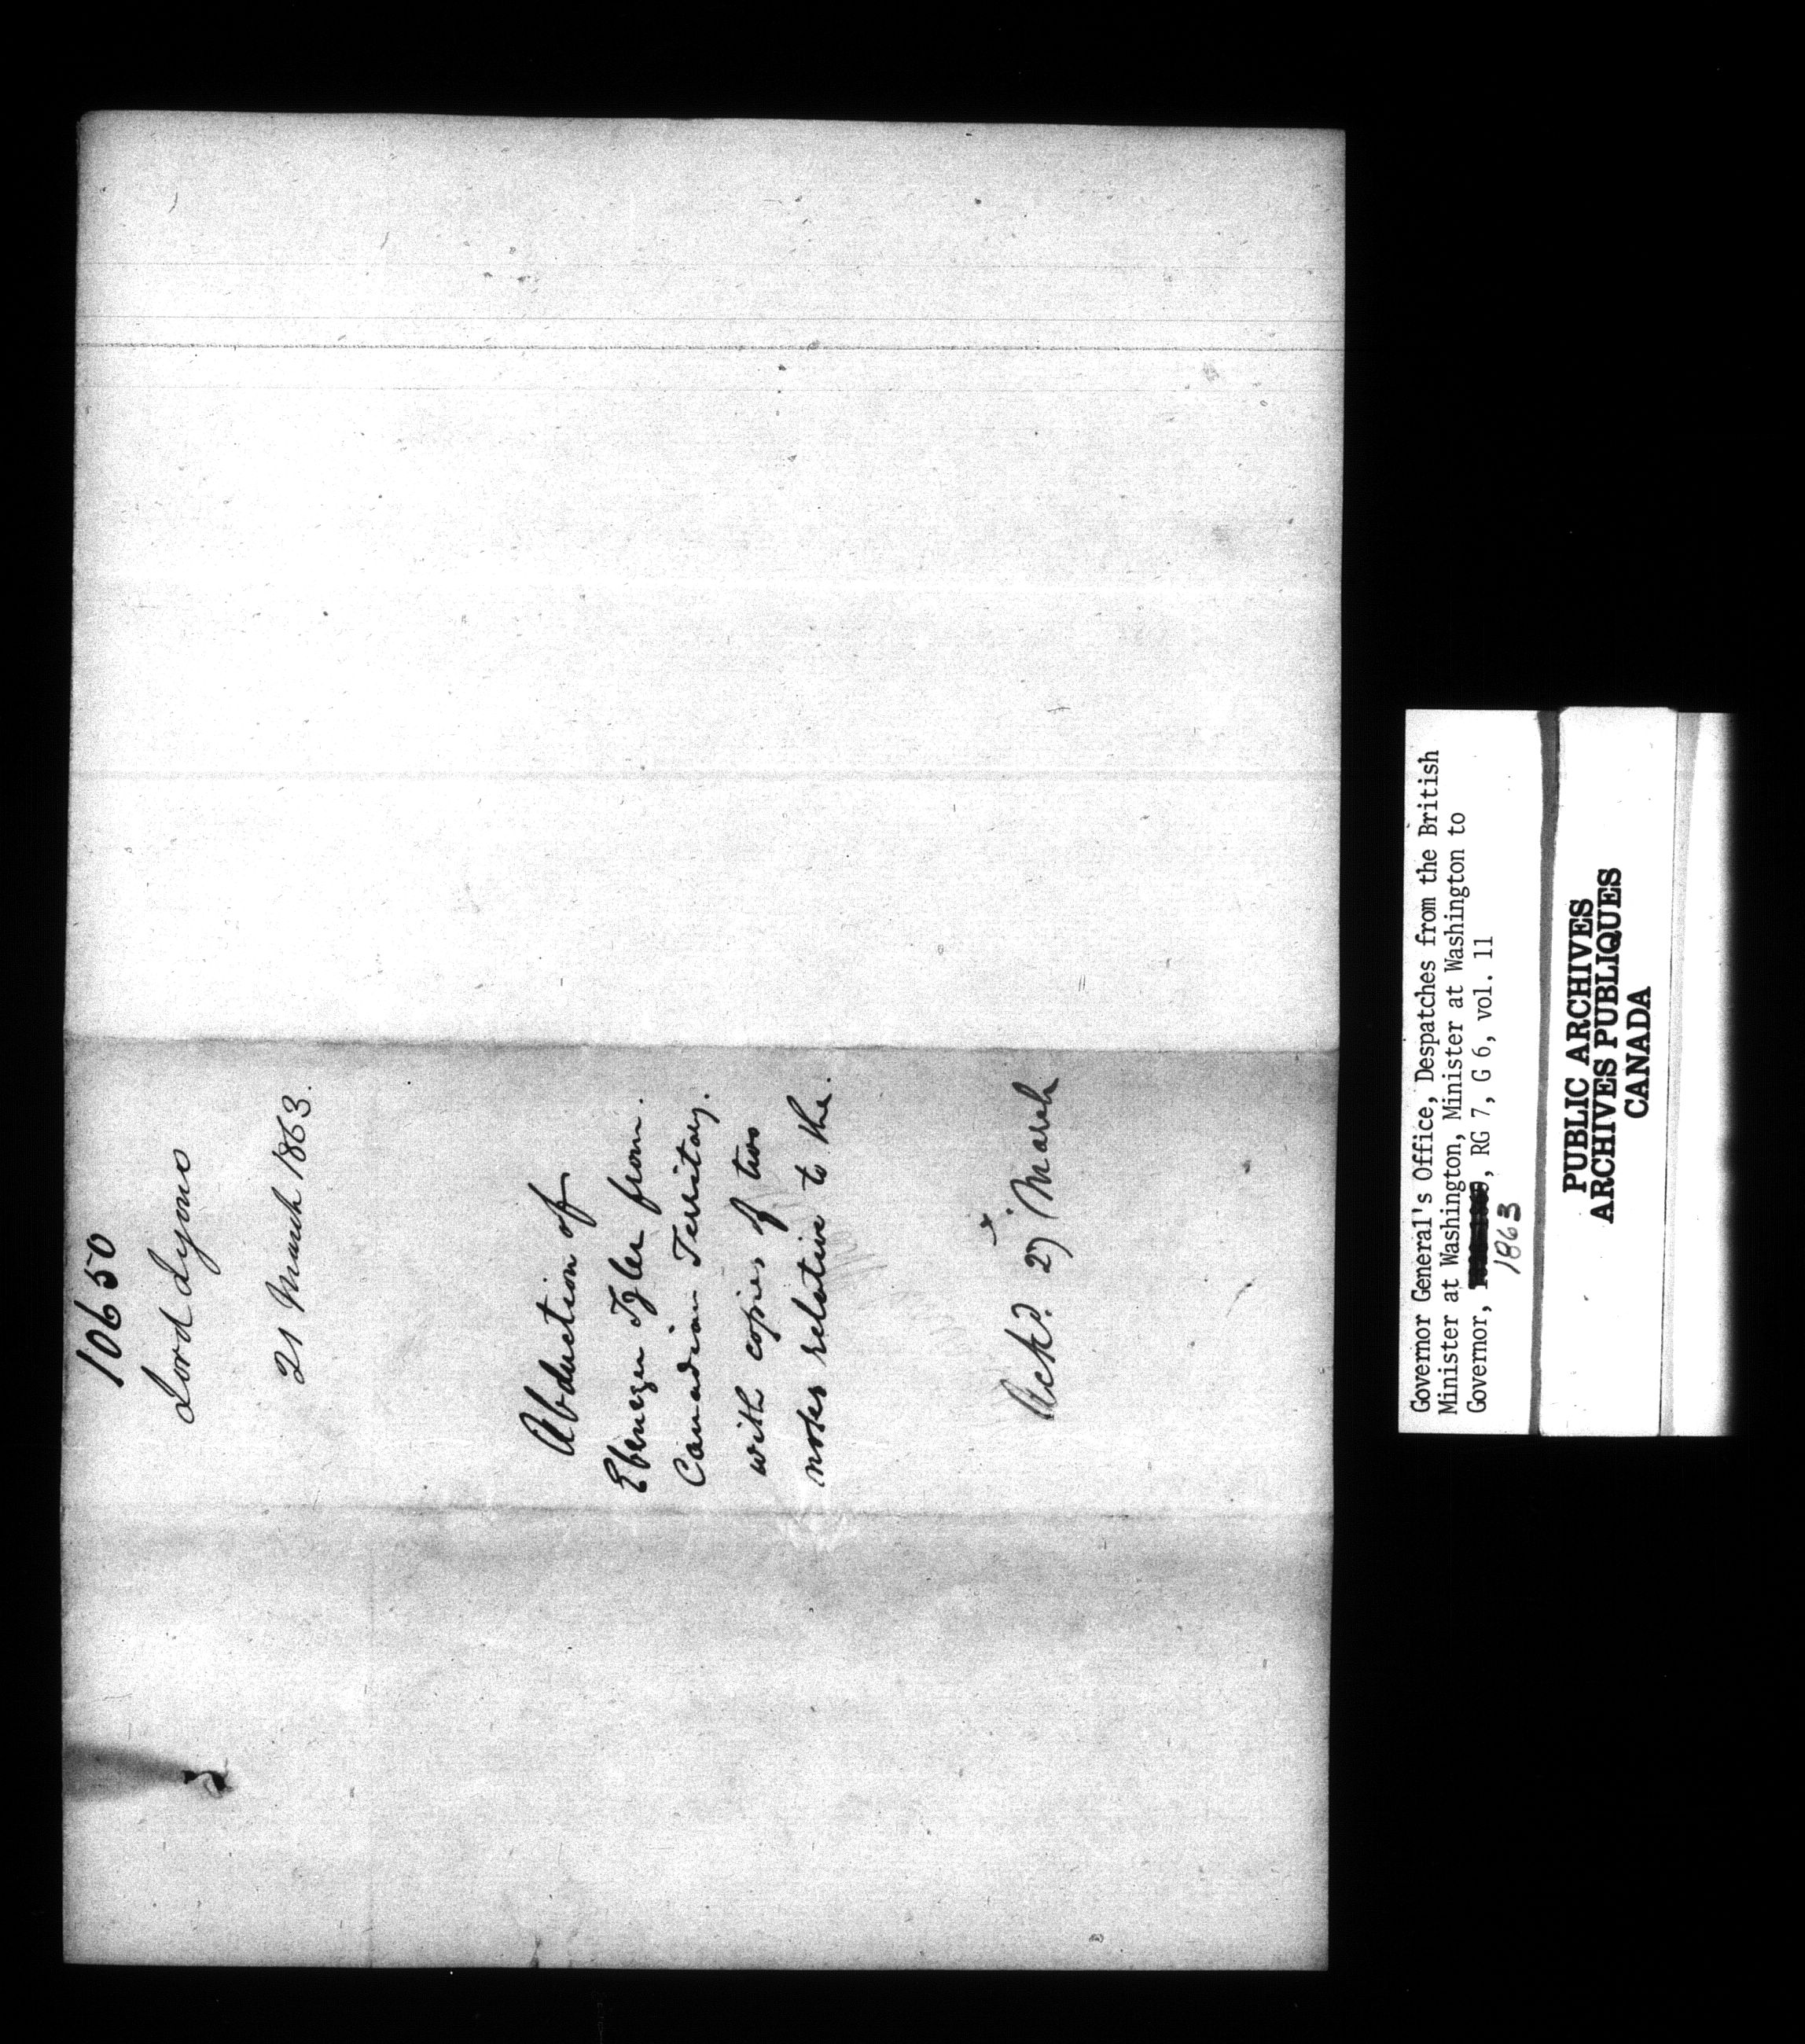 10650
Lord Lyons
21 March 1863.
Abduction of
Ebenezer Tyler from.
Canadian Territory.
with copies of two
notes relative to the.
Ackd. 27 March
Governor General's Office, Despatches from the British
Minister at Washington, Minister at Washington to
Governor, , RG 7, G 6, vol. 11
1863
PUBLIC ARCHIVES
ARCHIVES PUBLIQUES
CANADA